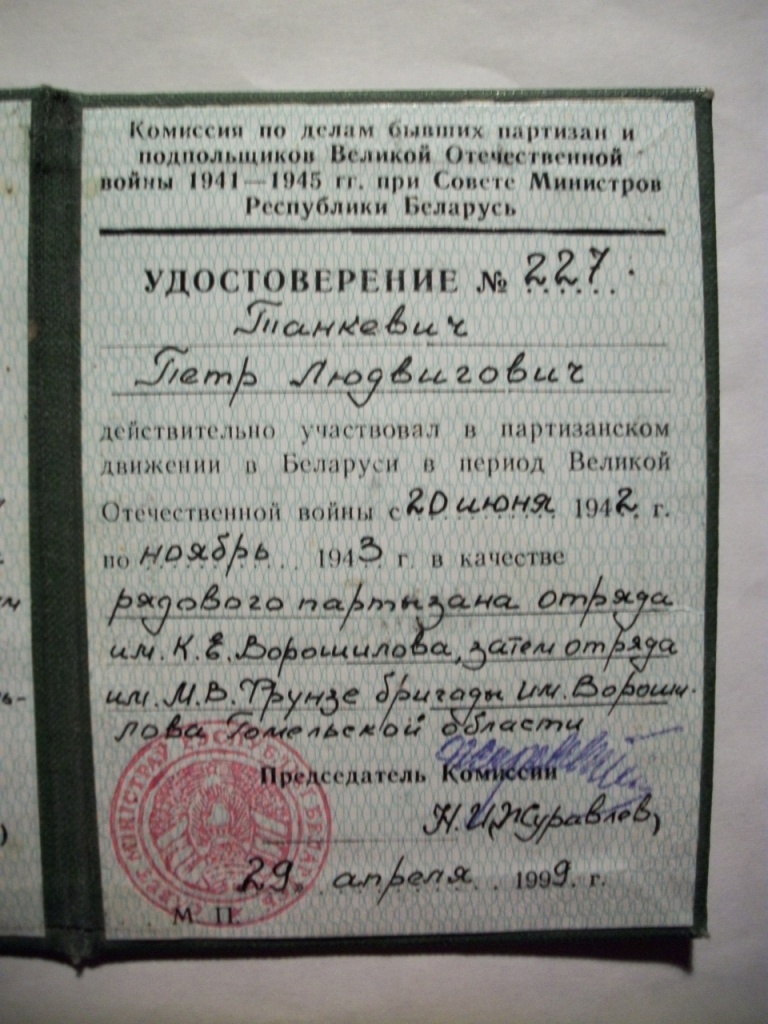 Комиссия по делам бывших партизан и
подпольщиков Великой Отечественной
войны 1941—1945 гг. при Совете Министров
Республики Беларусь
УДОСТОВЕРЕНИЕ № 227
Танкевич
Петр Людвигович
действительно участвовал в партизанском
движении в Беларуси в период Великой
Отечественной войны с 20 июня 1942 г.
по ноябрь 1943 г. в качестве
рядового партызана отряда
им. К.Е. Ворошилова, затем отряда
им. М.В. Фрунзе бригады им. Вороши-
лова Гомельской области
Председатель Комиссии
Н.И. Журавлев)
29 апреля 1999 г.
М. П.